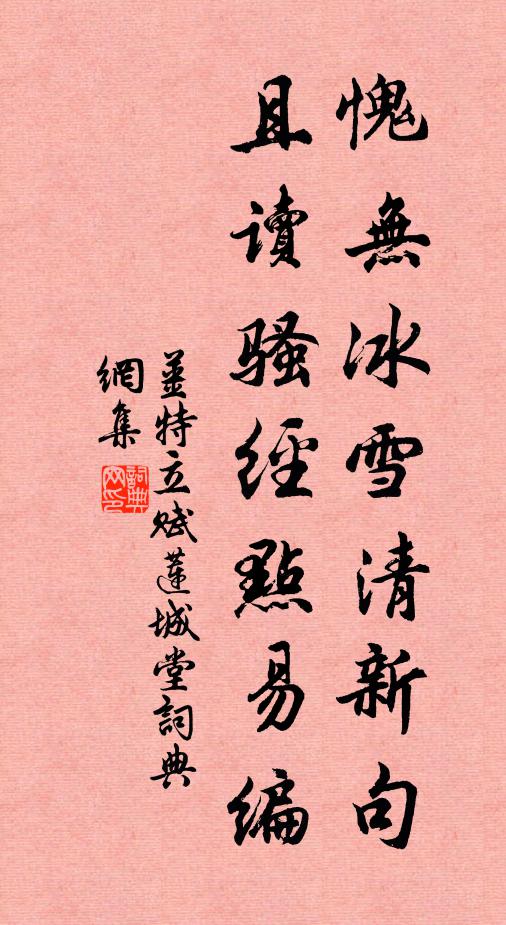 愧無冰雪清新句
且讀騷經點易編
姜特立賦蓮城堂詞典
網集
詞典網印